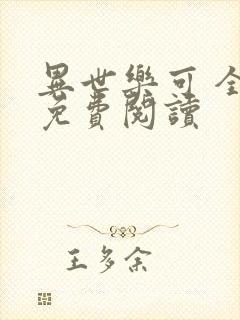 異世樂可 全
免費閱讀
王多余